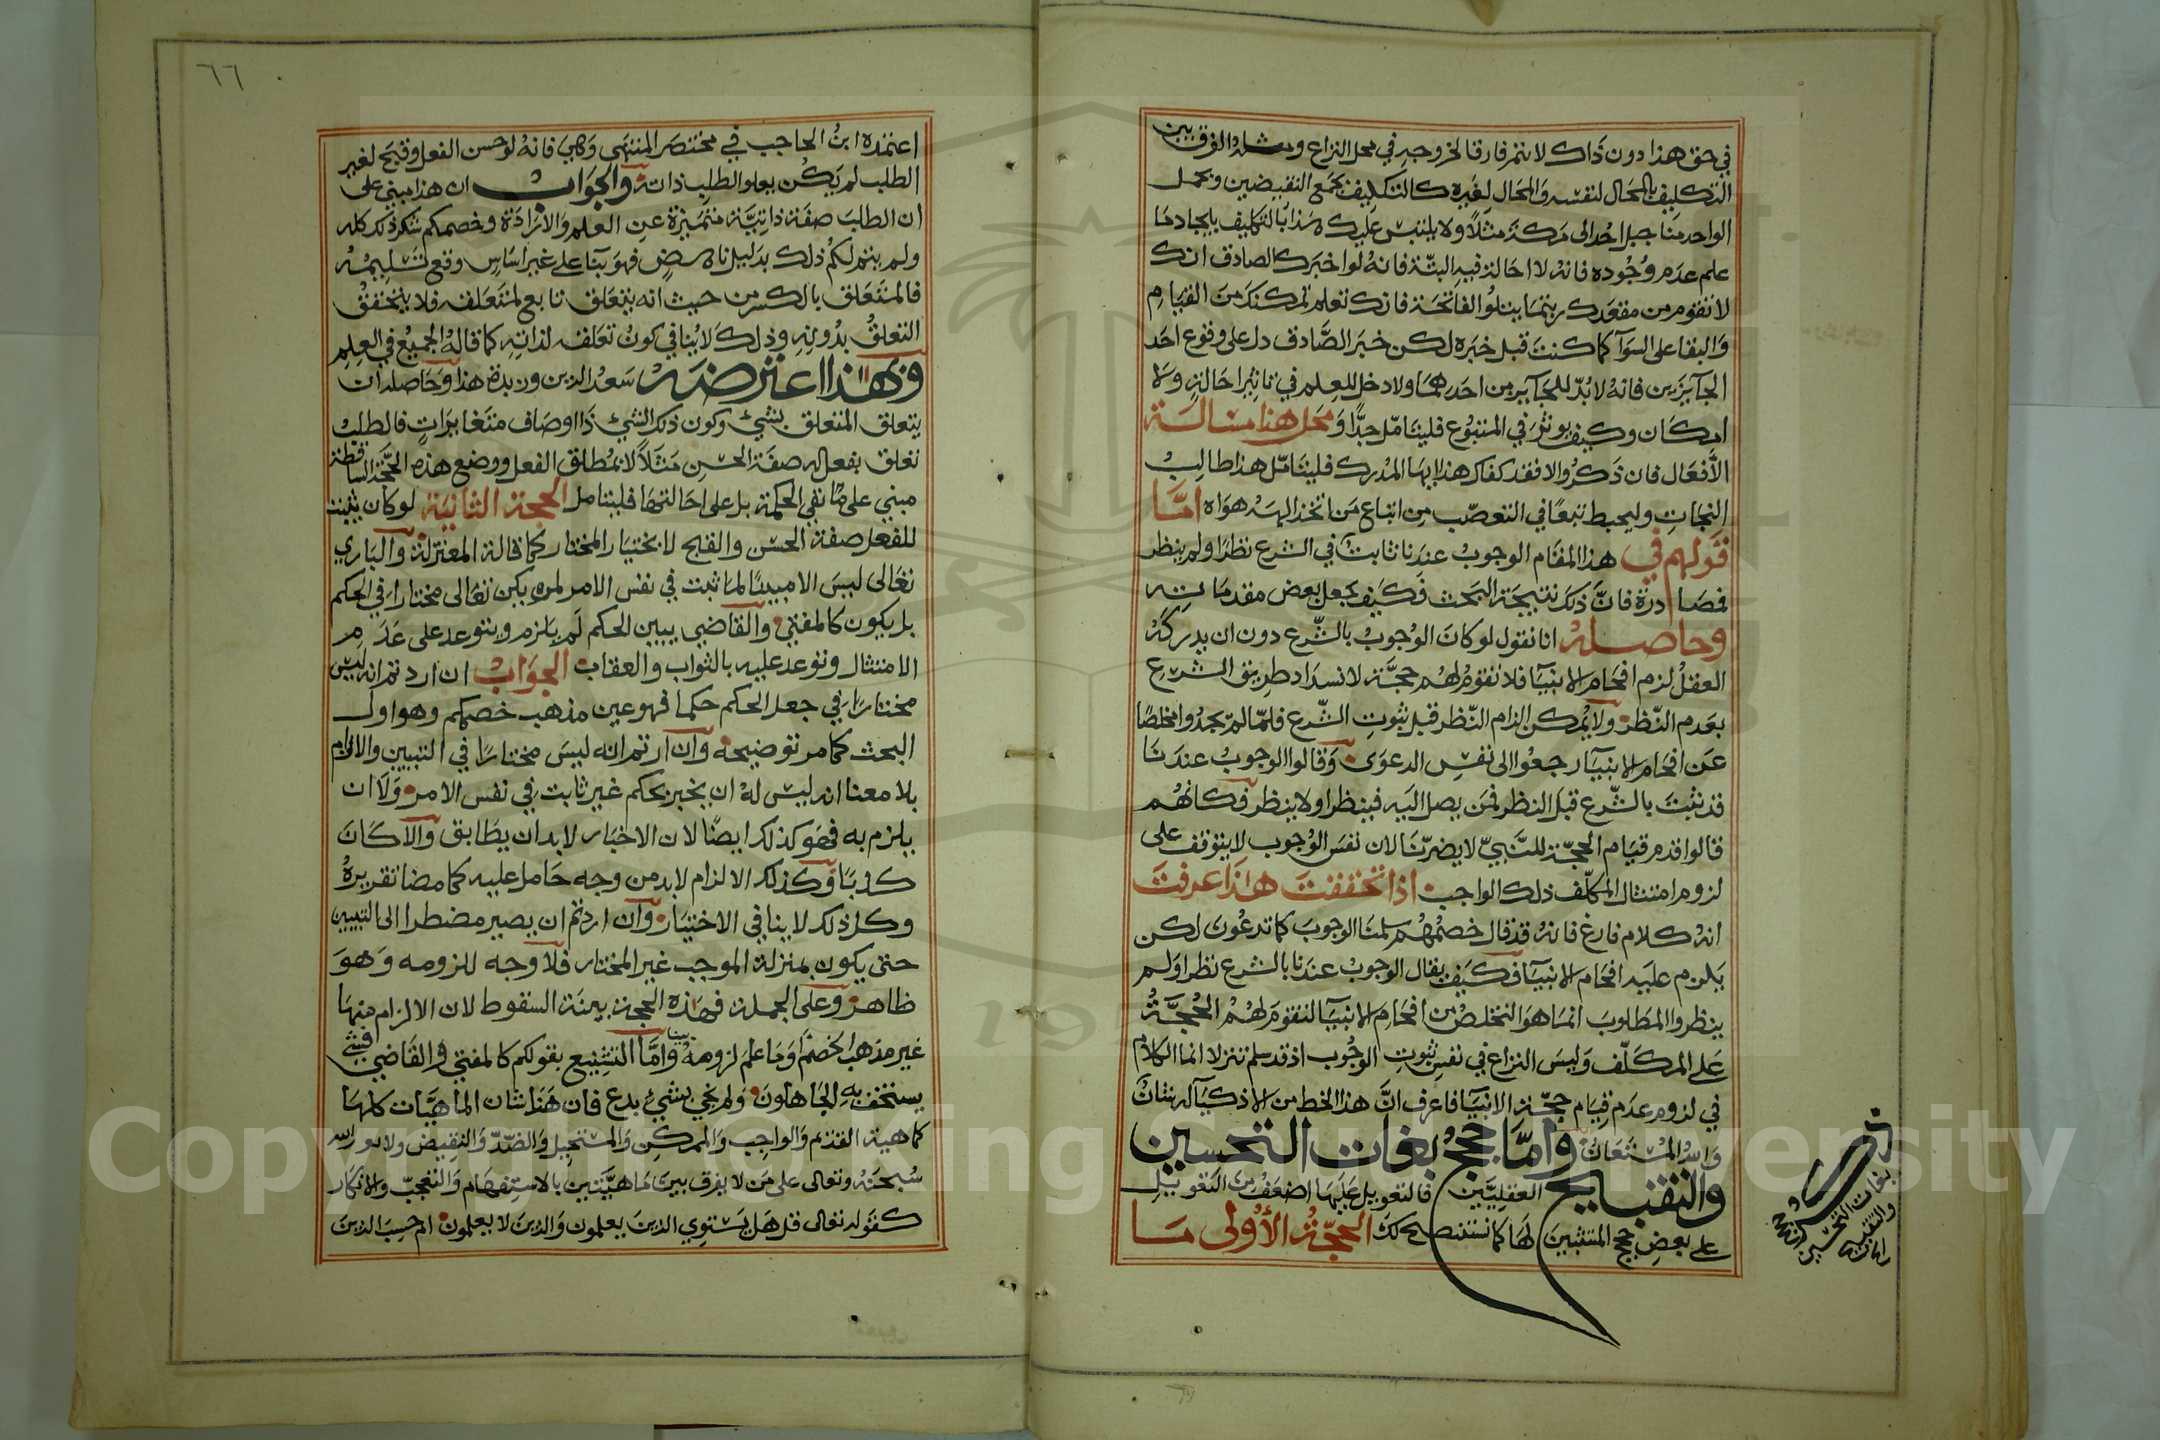 في حق هذا دون ذاك لا ثم فارقا لخروجه في محل النزاع ومثله الفرق بين
التكليف بالمحال لنفسه والمحال لغيره كالتكليف بجمع النقيضين وبحمل
الواحد منا جبل احد الى مكة مثلا ولا يلتبس عليك هذا بالتكليف بايجاد ما
علم عدم وجوده فانه لا احالة فيه البتة فانه لو اخبرك الصادق انك
لا تقوم من مقعدك ريثما يتلو الفاتحة فانك تعلم تمكنك من القيام
والبقا على السوآ كما كنت قبل خبره لكن خبر الصادق دل على وقوع احد
الجآيزين فانه لا بد للجآيز من احدهما ولا دخل للعلم في تاثير احالة ولا
امكان وكيف يوثر في المتبوع فليتامل جدا ومحل هذا مسالة
الافعال فان ذكروا لا فقد كفاك هذا ايها المدرك فليتامل هذا طالب
النجات وليحبط تبعا في التعصب من اتباع من اتخذ الهه هواه اما
قولهم في هذا المقام الوجوب عندنا ثابت في الشرع نظرا ولم ينظر
فمصادرة فان ذلك نتيجة البحث فكيف يجعل بعض مقدماته
وحاصله انا نقول لو كان الوجوب بالشرع دون ان يدركه
العقل لزم افحام الانبيآ فلا تقوم لهم حجة لانسداد طريق الشرع
بعدم النظر ولا يمكن الزام النظر قبل ثبوت الشرع فلما لم يجدوا مخلصا
عن افحام الانبيآ رجعوا الى نفس الدعوى وقالوا الوجوب عندنا
قد ثبت بالشرع قبل النظر فمن يصل اليه فينظر او لا ينظر فكانهم
قالوا قدم قيام الحجة للنبي لا يضرنا لان نفس الوجوب لا يتوقف على
لزوم امتثال المكلف ذلك الواجب اذا تحققت هذا عرفت
انه كلام فارغ فانه قد قال خصمهم سلمنا الوجوب كما تدعون لكن
يلزم عليه افحام الانبيآ فكيف يقال الوجوب عندنا بالشرع نظر اولم
ينظر والمطلوب انما هو التخلص من افحام الانبيآ لتقوم لهم الحجة
على المكلف وليس النزاع في نفس ثبوت الوجوب اذ قد سلم تنزلا انما الكلام
في لزوم عدم قيام حجة الانبيآ فاعرف ان هذا الخط من الاذكيآ له شان
والله المستعان واما حجج نفات التحسين
والتقبيح العقليين فالتعويل عليها اضعف من التعويل
على بعض حجج المثبتين لها كما ستتضح لك الحجة الأولى ما
نفات التحسين
والتقبيح
اعتمده ابن الحاجب في مختصر المنتهى وهي فانه لو حسن الفعل وقبح لغير
الطلب لم يكن تعلق الطلب لذاته والجواب ان هذا مبني على
ان الطلب صفة ذاتية متميزة عن العلم والارادة وخصمكم ينكر ذلك كله
ولم يتم لكم ذلك بدليل ناهض فهو بنآ على غير اساس وقع تسليمه
فالمتعلق بالكسر من حيث انه يتعلق تابع لمتعلقه فلا يتحقق
التعلق بدونه وذلك لا ينافي كون تعلقه لذاته كما قاله الجميع في العلم
وبهذا اعترضه سعد الدين وزبدة هذا وحاصله ان
يتعلق المتعلق بشي وكون ذلك الشي ذا اوصاف متغايرات فالطلب
تعلق بفعل له صفة الحسن مثلا لا بمطلق الفعل ووضع هذه الحجة الساقطة
مبني على نفي الحكمة بل على احالتها فليتامل الحجة الثانية لو كان يثبت
للفعل صفة الحسن والقبح لا بختيار المختار كما قاله المعتزلة والباري
تعالى ليس الا مبينا لما ثبت في نفس الامر لم يكن تعالى مختارا في الحكم
بل يكون كالمفتي والقاضي يبين الحكم ثم يلزم ويتوعد على عدم
الامتثال وتوعد عليه بالثواب والعقاب الجواب ان اردتم انه ليس
مختارا في جعل الحكم حكما فهو عين مذهب خصمكم وهو اول
البحث كما مر توضيحه وان اردتم انه ليس مختارا في التبيين والالزام
بلا معنا انه ليس له ان يخبر بحكم غير ثابت في نفس الامر ولا ان
يلزم به فهو كذلك ايضا لان الاخبار لابد ان يطابق والا كان
كذبا وكذلك الالزام لابد من وجه حامل عليه كما مضا تقريره
وكل ذلك لا ينافي الاختيار وان اردتم ان يصير مضطرا الى التبيين
حتى يكون بمنزلة الموجب غير المختار فلا وجه للزومه وهو
ظاهر وعلى الجملة فهذه الحجة بينة السقوط لان الالزام منها
غير مذهب الخصم او ما علم لزومه واما التشنيع بقولكم كالمفتي والقاضي فشي
يستخف به الجاهلون ولم يجي بشي بدع فان هذا شان الماهيات كلها
كماهية القديم والواجب والممكن والمستحيل والضد والنقيض ولا
سبحنه وتعالى على من لا يفرق بين ماهيتين بالاستفهام والتعجب والانكار
كقوله تعالى قل هل يستوي الذين يعلمون والذين لا يعلمون ام حسب الذين
٦٦
Copyright © King Saud University